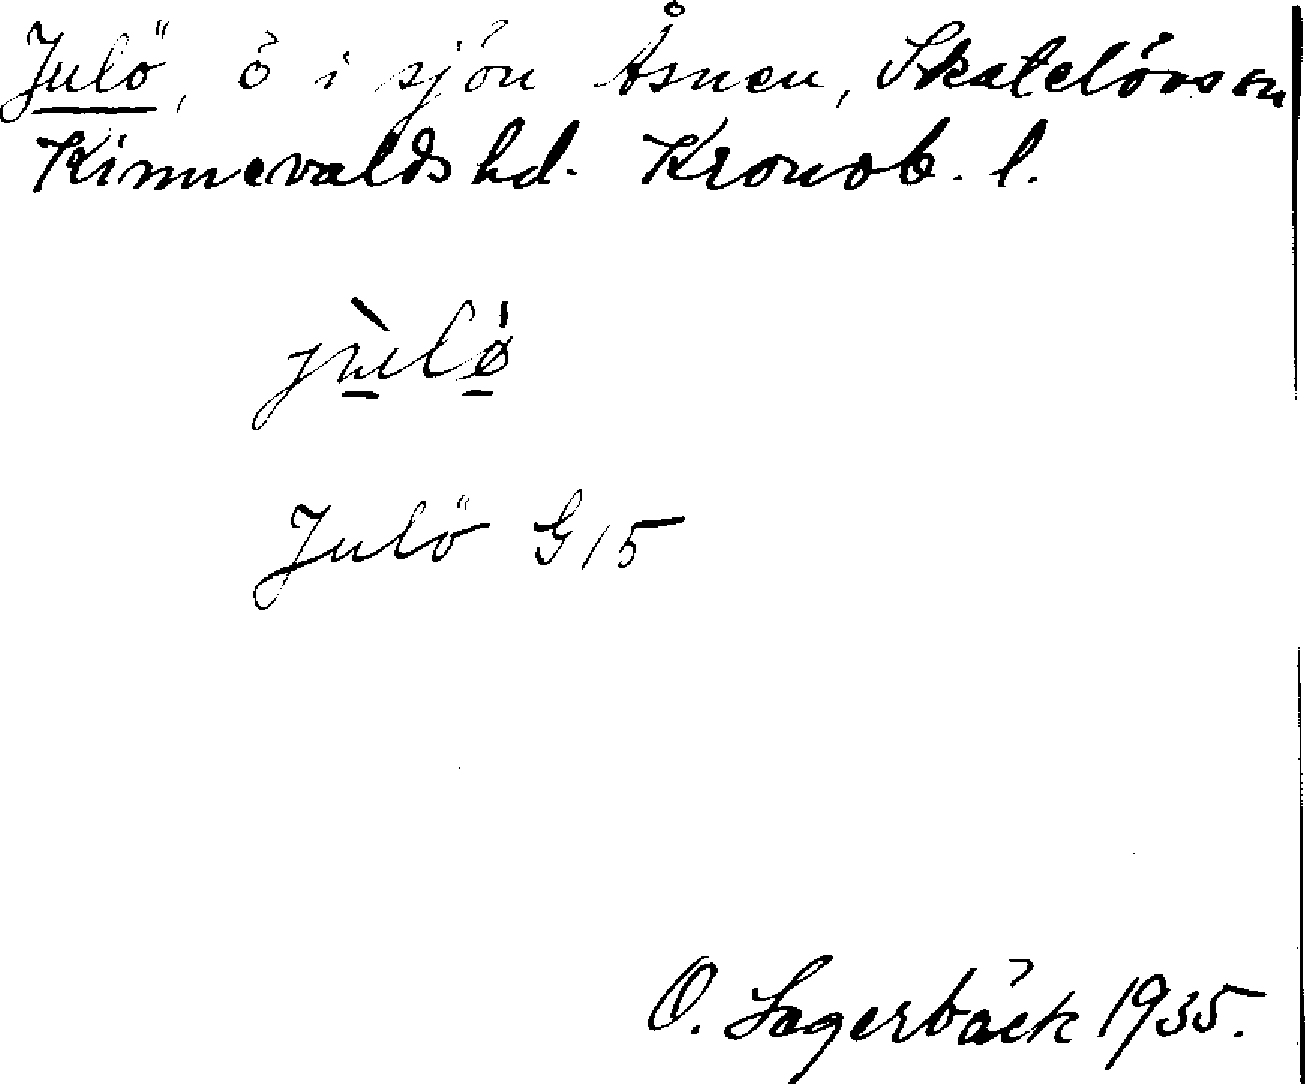 Julö, ö i sjön Åsnen, Skatelövs sn
Kinnevalds hd. Kronob. l.
jùlǿ
Julö G 15
O. Lagerbäck 1935.